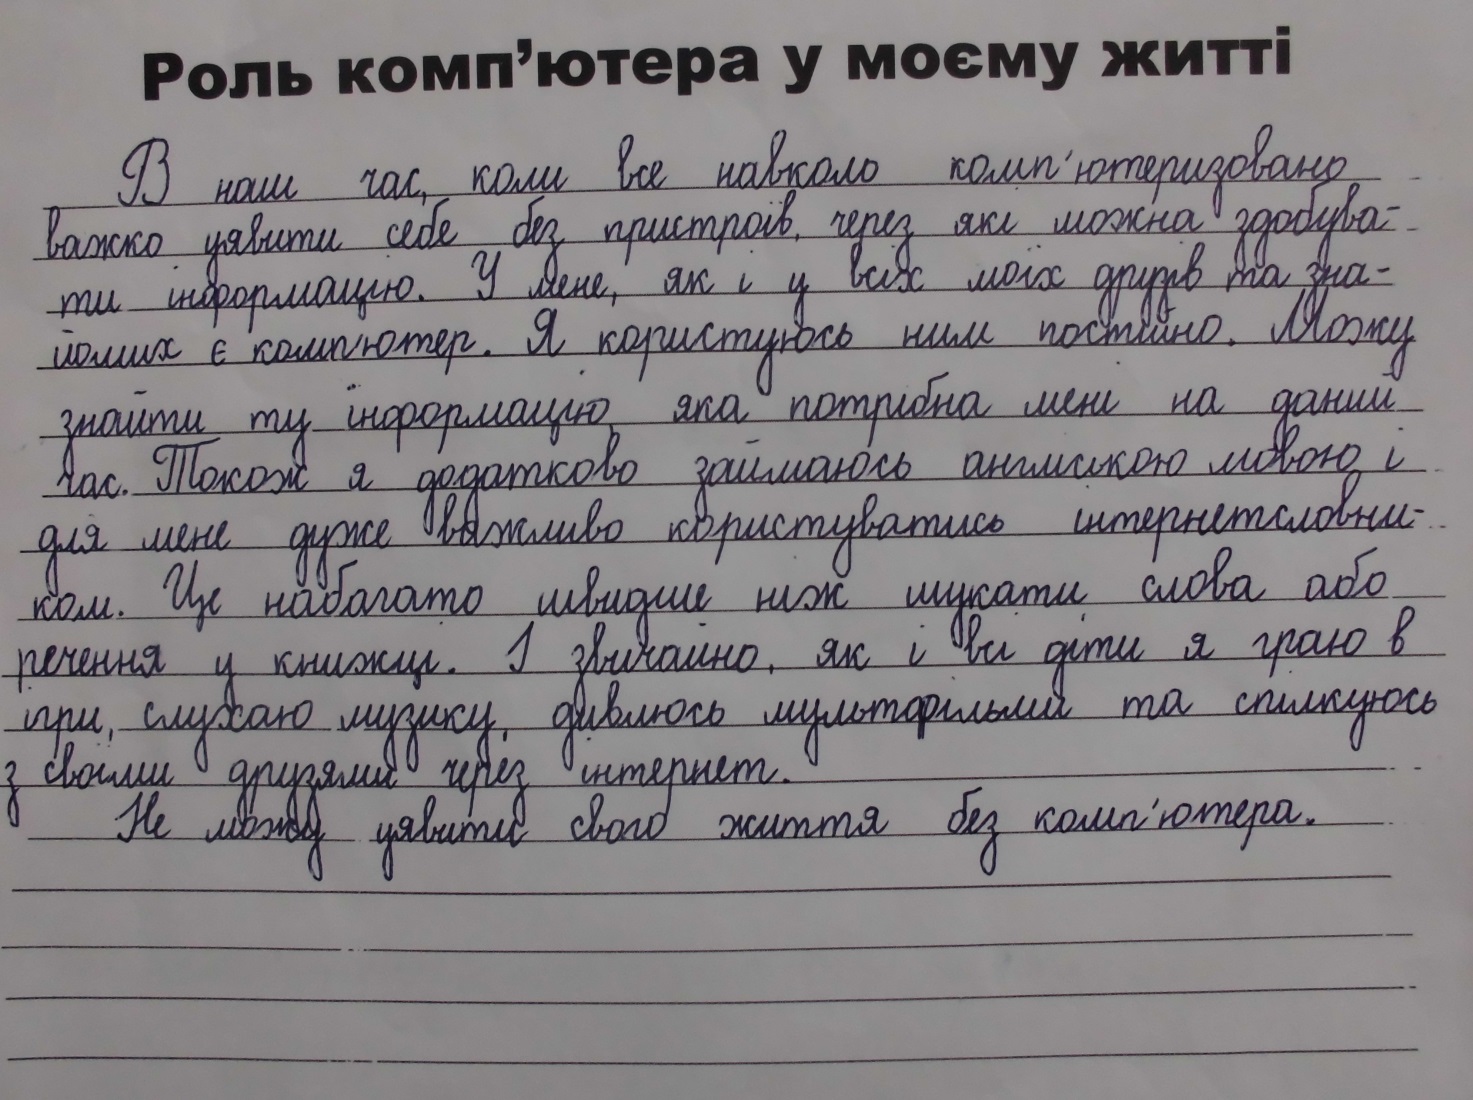 Роль комп’ютера у моєму житті
В наш час, коли все навколо комп'ютеризовано
важко уявити себе без пристроїв, через які можна здобува-
ти інформацію. У мене, як і у всіх моїх друзів та зна-
йомих є комп'ютер. Я користуюсь ним постійно. Можу
знайти ту інформацію, яка потрібна мені на даний
час. Також я додатково займаюсь англійською мовою і
для мене дуже важливо користуватись інтернетсловни-
ком. Це набагато швидше ніж шукати слова або
речення у книжці. І звичайно, як і всі діти я граю в
ігри, слухаю музику, дивлюсь мультфільми та спілкуюсь
з своїми друзями через інтернет.
Не можу уявити свого життя без комп'ютера.